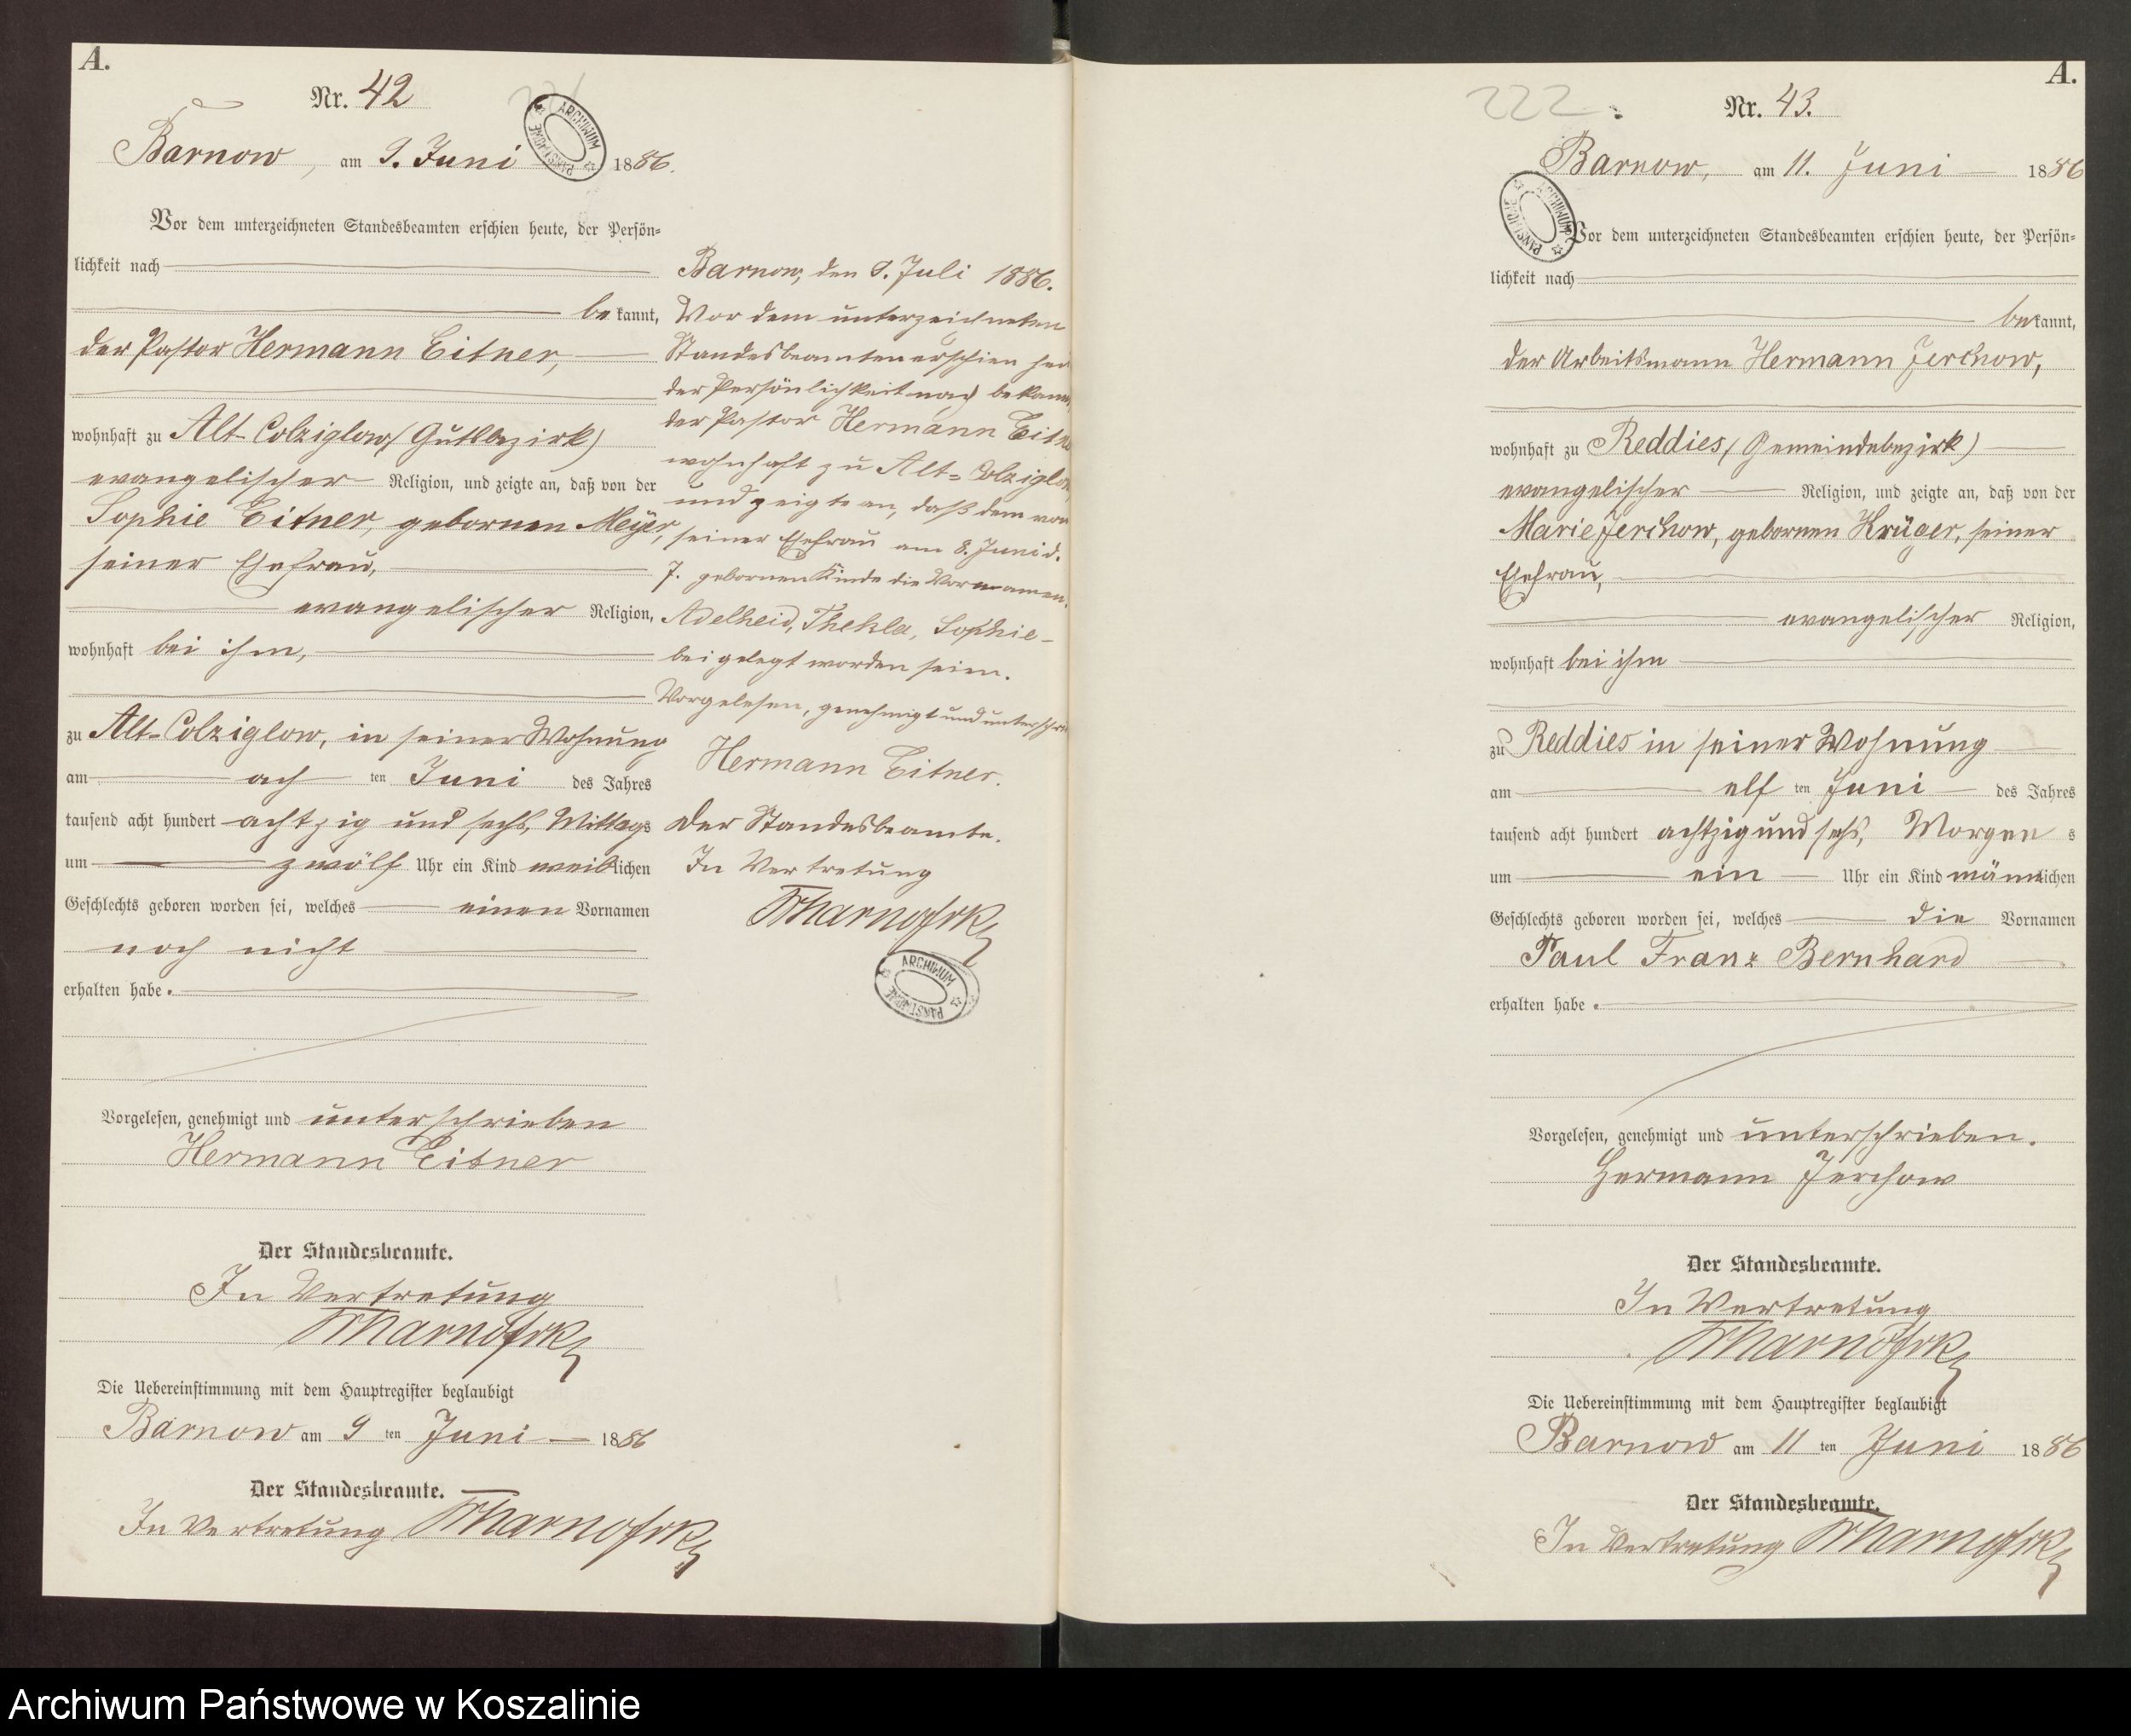 A.
Nr. 42
Barnow, am 9. Juni 1886.
Vor dem unterzeichneten Standesbeamten erschien heute, der Persön=
lichkeit nach
bekannt,
der Pastor Hermann Eitner,
wohnhaft zu Alt-Colziglow (Gutsbezirk)
evangelischer Religion, und zeigte an, daß von der
Sophie Eitner, gebornen Meyer,
seiner Ehefrau,
evangelischer Religion,
wohnhaft bei ihm,
zu Alt-Colziglow, in seiner Wohnung
am ach ten Juni des Jahres
tausend acht hundert achtzig und sechs, Mittags
um zwölf Uhr ein Kind weiblichen
Geschlechts geboren worden sei, welches einen Vornamen
noch nicht
erhalten habe.
Vorgelesen, genehmigt und unterschrieben
Hermann Eitner
Der Standesbeamte.
In Vertretung
Die Uebereinstimmung mit dem Hauptregister beglaubigt
Barnow am 9 ten Juni 1886
Der Standesbeamte.
In Vertretung
Barnow, den 9. Juli 1886.
Vor dem unterzeichneten
Standesbeamten erschien
der Persönlichkeit nach
der Pastor Hermann
wohnhaft zu Alt=
und zeigte an, daß dem von
seiner Ehefrau am 8. Juni d.
J. gebornen Kinde die Vornamen
Adelheid, Thekla, Sophie-
beigelegt worden seien.
Vorgelesen, genehmigt und
Hermann Eitner.
Der Standesbeamte.
In Vertretung
ARCHIWUM PAŃSTWOWE
A.
222
Nr. 43.
Barnow, am 11. Juni 1886
Vor dem unterzeichneten Standesbeamten erschien heute, der Persön=
lichkeit nach
bekannt,
der Arbeitsmann Hermann Jerchow,
wohnhaft zu Reddies, (Gemeindebezirk)
evangelischer Religion, und zeigte an, daß von der
Marie Jerchow, gebornen Krüger, seiner
Ehefrau,
evangelischer Religion,
wohnhaft bei ihm
zu Reddies in seiner Wohnung
am elf ten Juni des Jahres
tausend acht hundert achtzig und sechs, Morgens
um ein Uhr ein Kind männlichen
Geschlechts geboren worden sei, welches die Vornamen
Paul Franz Bernhard
erhalten habe.
Vorgelesen, genehmigt und unterschrieben.
Hermann Jerchow
Der Standesbeamte.
In Vertretung
Die Uebereinstimmung mit dem Hauptregister beglaubigt
Barnow am 11 ten Juni 1886
Der Standesbeamte.
In Vertretung
Archiwum Państwowe w Koszalinie